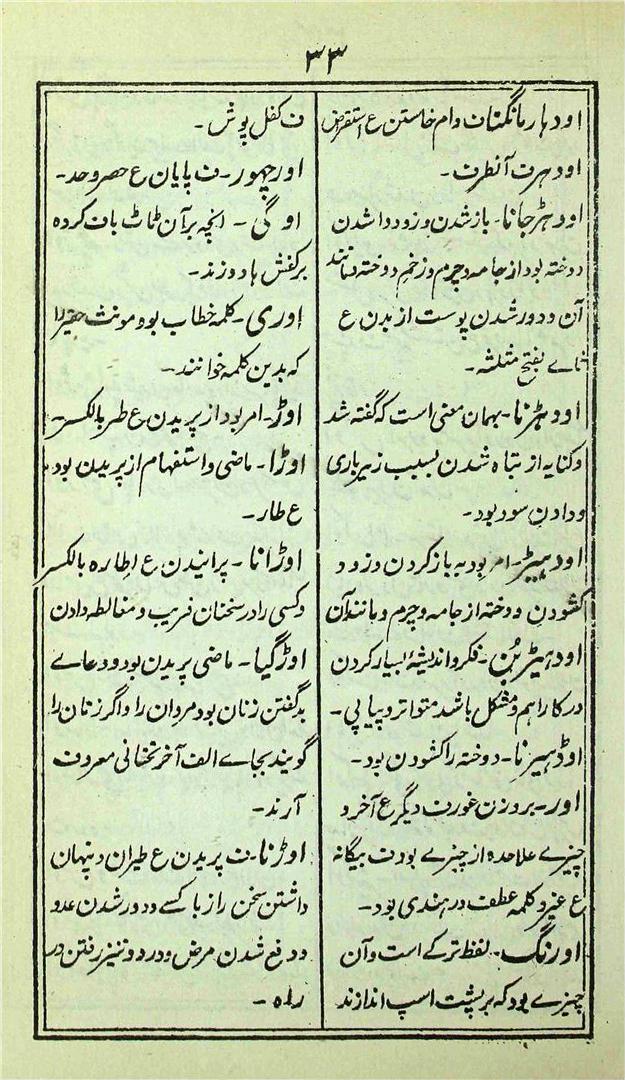 ۳۳
اودہار مانگنا ف وام خاستن ع استقراض
اودہر ف آنطرف۔
اودہڑجانا۔ بازشدن و زود داشدن
دوخته بود از جامه و چرم و زخم دوخته مانند
آن و دور شدن پوست از بدن ع
ثاے بفتح مثلثه۔
اودہڑنا۔ بہمان معنی است که گفته شد
وکنایه از تباه شدن بسبب زیرباری
و دادن سود بود۔
اودہیڑ۔ امر بود به باز کردن و زود
کشودن دوخته از جامه و چرم و مانند آن
اودہیڑبُن۔ فکر و اندیشۂ بسیار کردن
در کار اہم و مشکل باشد متواتر و پیاپی۔
اودہیڑنا۔ دوخته را کشودن بود۔
اور۔ بروزن غور ف دیگر ع آخر و
چیزے علاحده از چیزے بود ف بیگانه
ع غیر و کلمه عطف در ہندی بود۔
اورنگ۔ لفظ ترکے است و آن
چیزے بود که بر پشت اسپ اندازند
ف کفل پوش۔
اورچہور۔ ف پایان ع حصر و حد۔
اوگی۔ انچه بر آن ٹاٹ باف کرده
بر کفش ہا دوزند۔
اوری۔ کلمه خطاب بود مونث حقیر را
که بدین کلمه خوانند۔
اوڑ۔ امر بود از پریدن ع طر بالکسر۔
اوڑا۔ ماضی و استفہام از پریدن بود
ع طار۔
اوڑانا۔ پرانیدن ع اطاره بالکسر
و کسی را در سخنان فریب و مغالطه دادن
اوڑگیا۔ ماضی پریدن بود و دعاے
بد گفتن زنان بود مردان را و اگر زنان را
گویند بجاے الف آخر تحتانی معروف
آرند۔
اوڑنا۔ ف پریدن ع طیران و پنہان
داشتن سخن راز با کسے و دور شدن عدو
و دفع شدن مرض و درد و تیز رفتن در
راه۔